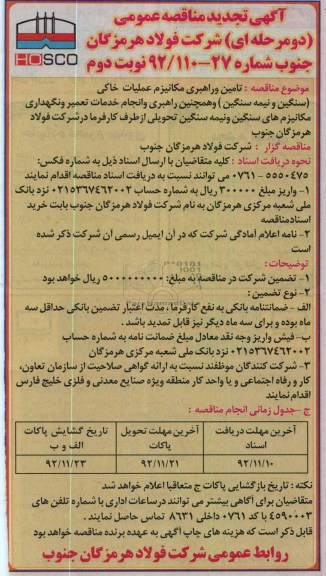 آگهی تجدید مناقصه عمومی
(دو مرحله ای) شرکت فولاد هرمزگان
جنوب شماره ۲۷-۹۲/۱۱۰ نوبت دوم
HOSCO
موضوع مناقصه : تامین وراهبری مکانیزم عملیات خاکی
(سنگین و نیمه سنگین ) وهمچنین راهبری وانجام خدمات تعمیر ونگهداری
مکانیزم های سنگین ونیمه سنگین تحویلی ازطرف کارفرما درشرکت فولاد
هرمزگان جنوب
مناقصه گزار : شرکت فولاد هرمزگان جنوب
نحوه دریافت اسناد : کلیه متقاضیان با ارسال اسناد ذیل به شماره فکس:
۵۵۵۰۴۷۵ - ۰۷۶۱ می توانند نسبت به دریافت اسناد مناقصه اقدام نمایند
۱- واریز مبلغ ۳۰۰۰۰۰ ریال به شماره حساب ۰۲۱۵۳۶۷۴۶۲۰۰۲ نزد بانک
ملی شعبه مرکزی هرمزگان به نام شرکت فولاد هرمزگان جنوب بابت خرید
اسنادمناقصه
۲- نامه اعلام آمادگی شرکت که در آن ایمیل رسمی آن شرکت ذکر شده
است
توضیحات:
۱- تضمین شرکت در مناقصه به مبلغ: ۵۰۰۰۰۰۰۰۰۰ ریال خواهد بود
۲- نوع تضمین:
الف - ضمانتنامه بانکی به نفع کارفرما ، مدت اعتبار تضمین بانکی حداقل سه
ماه بوده و برای سه ماه دیگر نیز قابل تمدید باشد .
ب- فیش واریز وجه نقد معادل مبلغ ضمانت نامه به شماره حساب
۰۲۱۵۳۶۷۴۶۲۰۰۲ نزد بانک ملی شعبه مرکزی هرمزگان
۳- شرکت کنندگان موظفند نسبت به ارائه گواهی صلاحیت از سازمان تعاون،
کار و رفاه اجتماعی و یا واحد کار منطقه ویژه صنایع معدنی و فلزی خلیج فارس
اقدام نمایند
ج -جدول زمانی انجام مناقصه :
آخرین مهلت دریافت اسناد	آخرین مهلت تحویل پاکات	تاریخ گشایش پاکات الف و ب
۹۲/۱۱/۱۰	۹۲/۱۱/۲۱	۹۲/۱۱/۲۳
نکته : تاریخ بازگشایی پاکات ج متعاقبا اعلام خواهد شد
متقاضیان برای آگاهی بیشتر می توانند درساعات اداری با شماره تلفن های
۴۵۹۰۰۰۳ با کد ۰۷۶۱ داخلی ۸۶۳۱ تماس حاصل نمایند .
قابل ذکر است که هزینه های چاپ آگهی به عهده برنده مناقصه خواهد بود
روابط عمومی شرکت فولاد هرمزگان جنوب